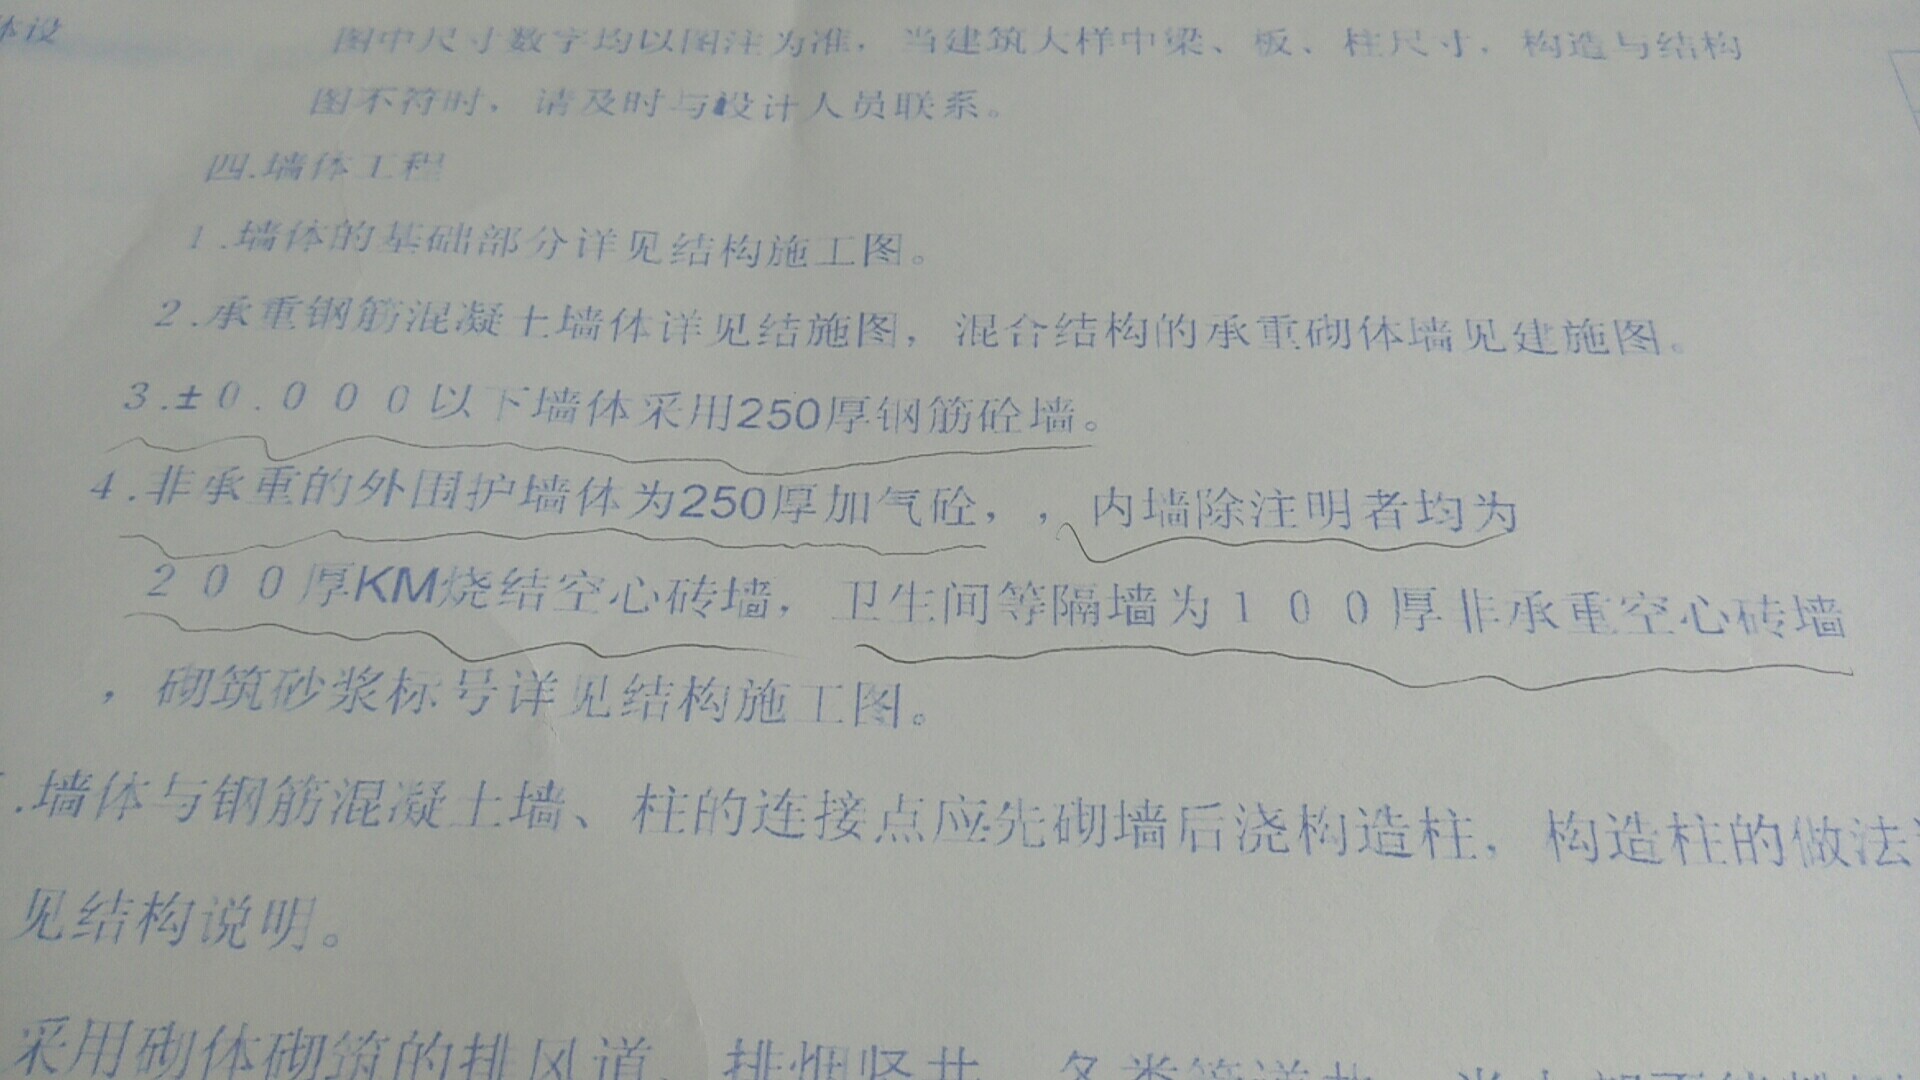 体设
图中尺寸数字均以图注为准，当建筑大样中梁、板、柱尺寸，构造与结构
图不符时，请及时与设计人员联系。
四.墙体工程
1.墙体的基础部分详见结构施工图。
2.承重钢筋混凝土墙体详见结施图，混合结构的承重砌体墙见建施图。
3.±0.000以下墙体采用250厚钢筋砼墙。
4.非承重的外围护墙体为250厚加气砼，，内墙除注明者均为
200厚KM烧结空心砖墙，卫生间等隔墙为100厚非承重空心砖墙
，砌筑砂浆标号详见结构施工图。
.墙体与钢筋混凝土墙、柱的连接点应先砌墙后浇构造柱，构造柱的做法
见结构说明。
采用砌体砌筑的排风道、排烟竖井、各类管道井，